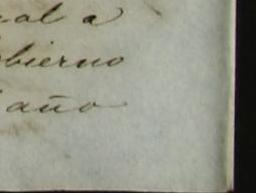 ual a
obierno
año